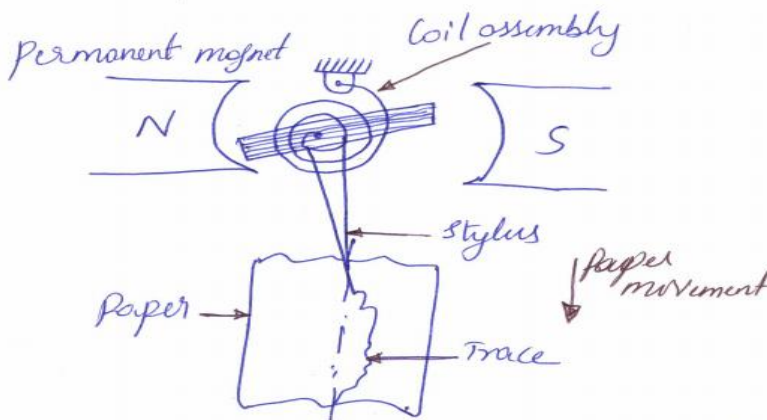 Permanent magnet
Coil assembly
N
S
Stylus
Paper
movement
Paper
Trace